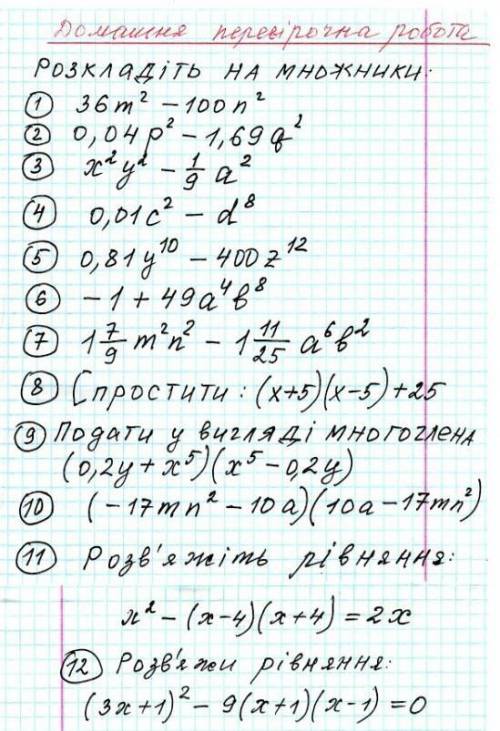 Домашня перевірочна робота
Розкладіть на множники:
① 36m² – 100n²
② 0,04p² – 1,69q²
③ x²y² – 1/9 a²
④ 0,01c² – d⁸
⑤ 0,81y¹⁰ – 400z¹²
⑥ – 1 + 49a⁴b⁸
⑦ 1 7/9 m²n² – 1 11/25 a⁶b²
⑧ Спростити: (x+5)(x–5)+25
⑨ Подати у вигляді многочлена
(0,2y + x⁵)(x⁵ – 0,2y)
⑩ (–17mn² – 10a)(10a – 17mn²)
⑪ Розв'яжіть рівняння:
x² – (x–4)(x+4) = 2x
⑫ Розв'яжи рівняння:
(3x+1)² – 9(x+1)(x–1) = 0